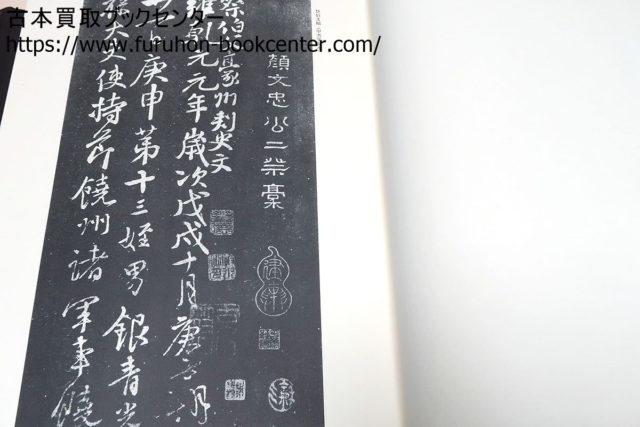 古本買取ブックセンター
https://www.furuhon-bookcenter.com/
顔文忠公二祭稾
祭伯父豪州刺史文
維乾元元年歲次戊戌十月庚午朔
日庚申第十三姪男銀青光
大夫使持節饒州諸軍事饒